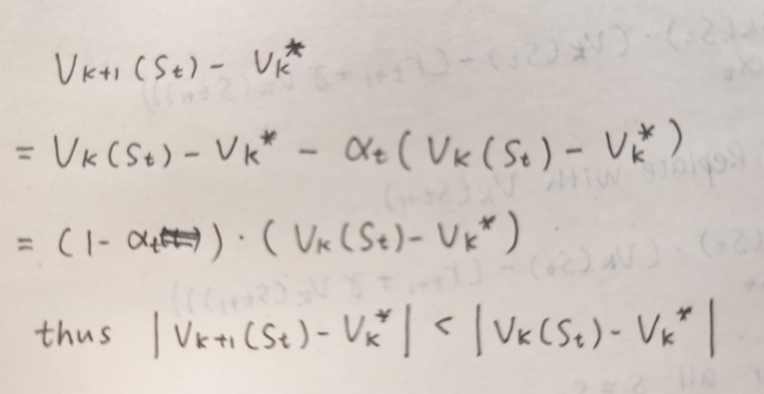 V_{k+1}(S_t) - V_k^*
= V_k(S_t) - V_k^* - α_t(V_k(S_t) - V_k^*)
= (1 - α_t) · (V_k(S_t) - V_k^*)
thus |V_{k+1}(S_t) - V_k^*| < |V_k(S_t) - V_k^*|